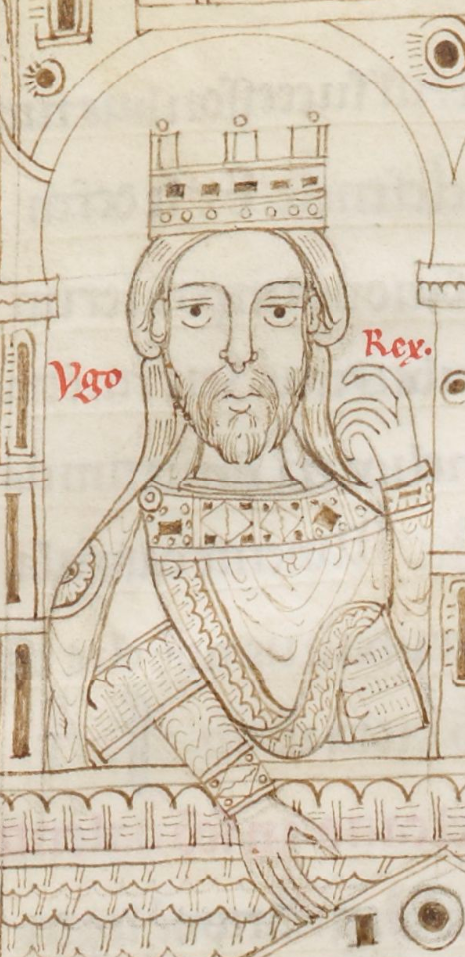 Vgo
Rex.